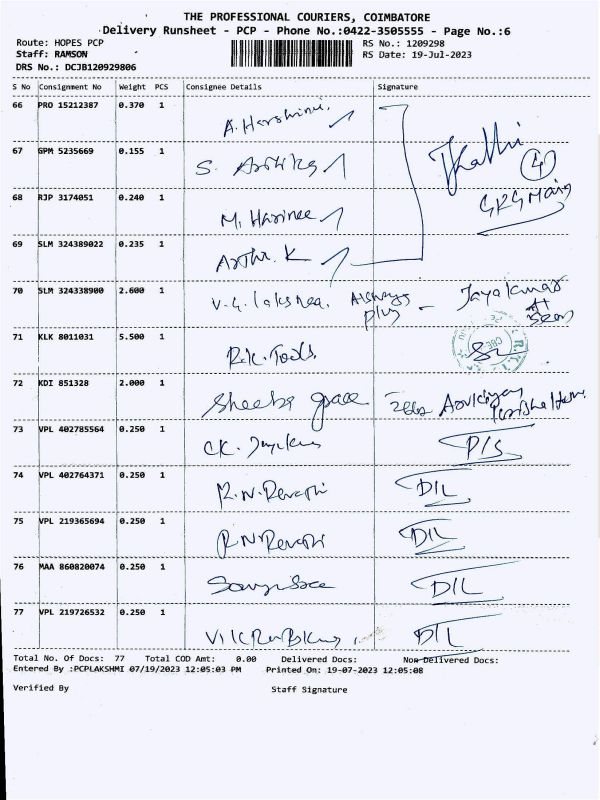 THE PROFESSIONAL COURIERS, COIMBATORE
Delivery Runsheet - PCP - Phone No.:0422-3505555 - Page No.:6
Route: HOPES PCP RS No.: 1209298
Staff: RAMSON RS Date: 19-Jul-2023
DRS No.: DCJB120929806
S No Consignment No Weight PCS Consignee Details Signature
66 PRO 15212387 0.370 1 A. Harshini.
67 GPM 5235669 0.155 1 S.
68 RJP 3174051 0.240 1 M. Harinee
69 SLM 324389022 0.235 1 K
4
70 SLM 324338900 2.600 1 Jayakumar
71 KLK 8011031 5.500 1 R.K. Tools
72 KDI 851328 2.000 1 Sheeba grace
73 VPL 402785564 0.250 1 CK. P/S
74 VPL 402764371 0.250 1 R.N. Revathi D/L
75 VPL 219365694 0.250 1 R.N. Revathi D/L
76 MAA 860820074 0.250 1 D/L
77 VPL 219726532 0.250 1 D/L
Total No. Of Docs: 77 Total COD Amt: 0.00 Delivered Docs: Non Delivered Docs:
Entered By :PCPLAKSHMI 07/19/2023 12:05:03 PM Printed On: 19-07-2023 12:05:08
Verified By Staff Signature